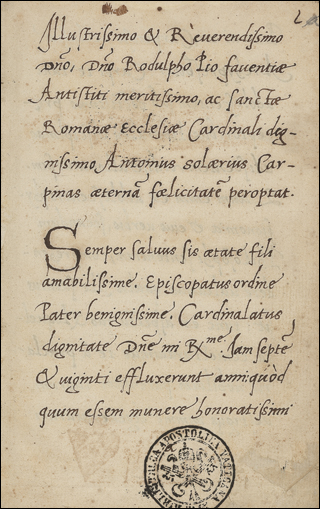 2
Illustrissimo & Reverendissimo
Dn̄o, Dn̄o Rodulpho Pio faventiæ
Antistiti meritissimo, ac sanctæ
Romanæ Ecclesiæ Cardinali dig-
nissimo Antonius solærius Car-
pinas æternā fœlicitatē peroptat.
Semper salvus sis ætate fili
amabilissime. Episcopatus ordine
Pater benignissime. Cardinalatus
dignitate Dn̄e mi Rme. Iam septē
& viginti effluxerunt anni quòd
quum essem munere honoratissimi
BIBLIOTHECA APOSTOLICA VATICANA